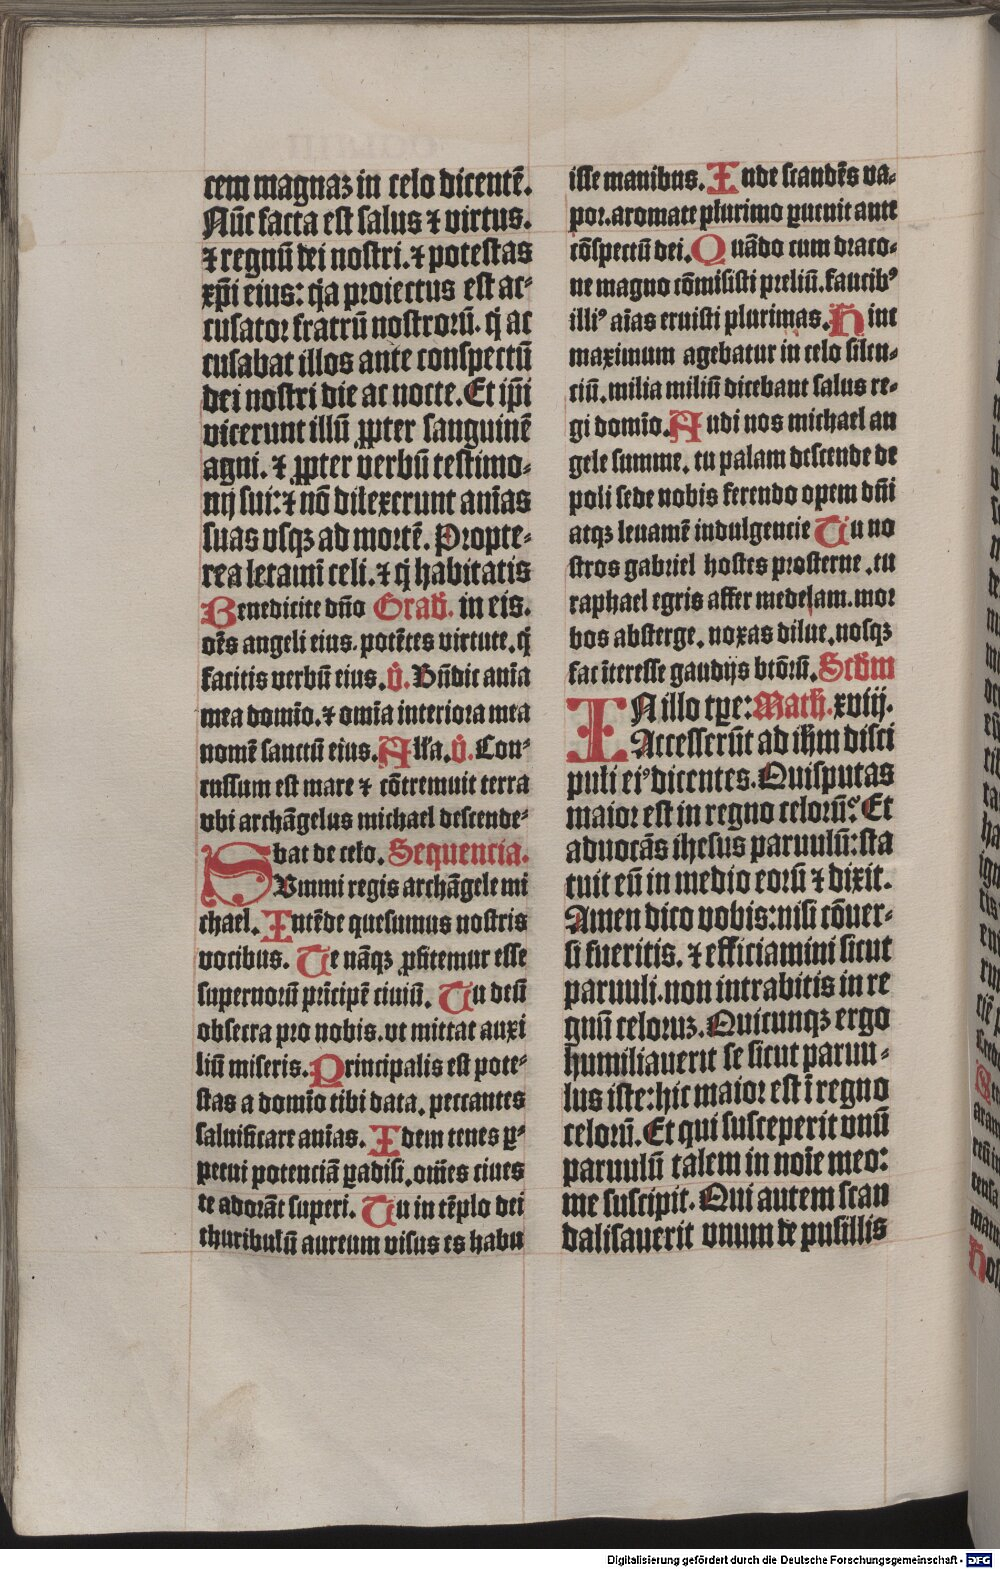 cem magnaꝫ in celo dicentē.
Nūc facta est salus ⁊ virtus.
⁊ regnū dei nostri. ⁊ potestas
xp̄i eius: q̄a proiectus est ac-
cusator fratrū nostrorū. q̄ ac
cusabat illos ante conspectū
dei nostri die ac nocte. Et ip̄i
vicerunt illū ꝓpter sanguinē
agni. ⁊ ꝓpter verbū testimo-
nij sui: ⁊ nō dilexerunt anīas
suas vsqꝫ ad mortē. Propte-
rea letamī celi. ⁊ q̄ habitatis
Benedicite dn̄o Grad̄. in eis.
oēs angeli eius. potētes virtute. q̄
facitis verbū eius. v̄. Bn̄dic anīa
mea domīo. ⁊ omīa interiora mea
nomē sanctū eius. All'a. v̄. Con-
cussum est mare ⁊ cōtremuit terra
vbi archāgelus michael descende-
bat de celo. Sequencia.
SVmmi regis archāgele mi
chael. Intēde quesumus nostris
vocibus. Te nāqꝫ ꝓfitemur esse
supernorū prīcipē ciuiū. Tu deū
obsecra pro nobis. vt mittat auxi
liū miseris. Principalis est pote-
stas a domīo tibi data. peccantes
saluificare anīas. Idem tenes ꝑ-
petui potenciā ꝑadisi. om̄es ciues
te adorāt superi. Tu in tēplo dei
thuribulū aureum visus es habu
isse manibus. Inde scandēs va-
por. aromate plurimo ꝑuenit ante
cōspectū dei. Quādo cum draco-
ne magno cōmisisti preliū. faucibꝰ
illiꝰ aīas eruisti plurimas. Hinc
maximum agebatur in celo silen-
ciū. milia miliū dicebant salus re-
gi domīo. Audi nos michael an
gele summe. tu palam descende de
poli sede nobis ferendo opem dn̄i
atqꝫ leuamē indulgencie Tu no
stros gabriel hostes prosterne. tu
raphael egris affer medelam. mor
bos absterge. noxas dilue. nosqꝫ
fac īteresse gaudijs btōrū. Scd̄m
IN illo tꝑe: Math. xviij.
Accesserūt ad ih̄m disci
puli eiꝰ dicentes. Quis putas
maior est in regno celorū? Et
aduocās ihesus paruulū: sta
tuit eū in medio eorū ⁊ dixit.
Amen dico vobis: nisi cōuer-
si fueritis. ⁊ efficiamini sicut
paruuli. non intrabitis in re
gnū celoruꝫ. Quicunqꝫ ergo
humiliauerit se sicut paruu-
lus iste: hic maior est ī regno
celorū. Et qui susceperit vnū
paruulū talem in noīe meo:
me suscipit. Qui autem scan
dalisauerit vnum de pusillis
Digitalisierung gefördert durch die Deutsche Forschungsgemeinschaft - DFG